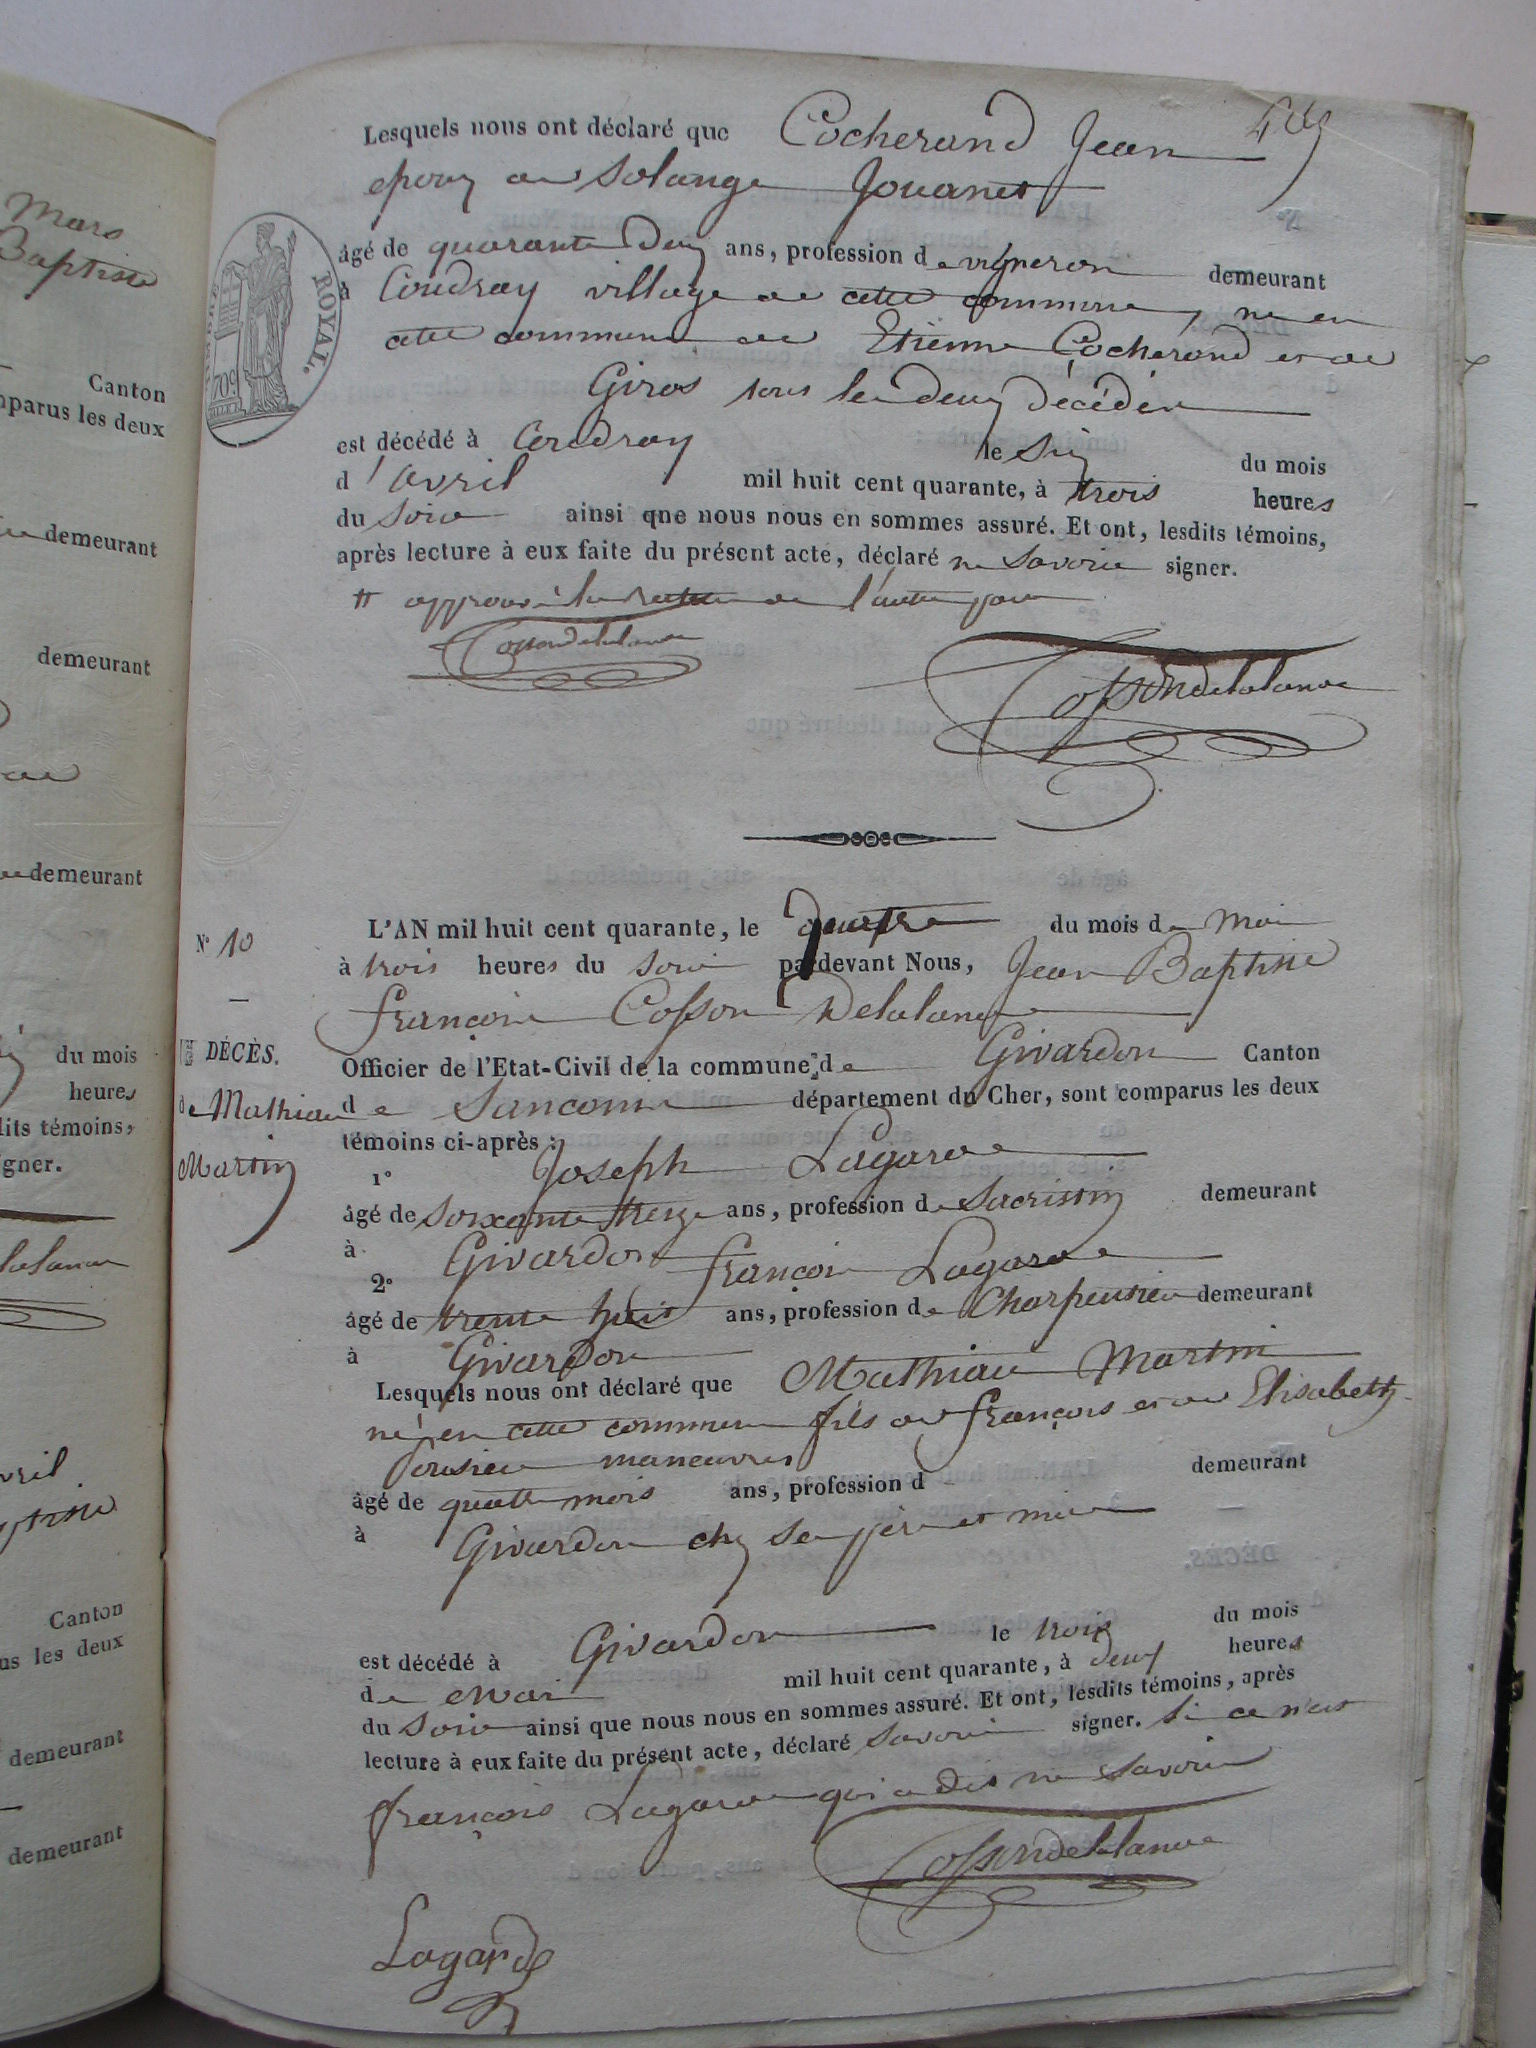 Mars
Baptiste
Canton
mparus les deux
demeurant
demeurant
demeurant
du mois
heures
dits témoins,
igner.
vril
Canton
us les deux
demeurant
demeurant
TIMBRE ROYAL.
709
Lesquels nous ont déclaré que Cocherand Jean
epoux de Solange Jouanet
âgé de quarante deux ans, profession de vigneron demeurant
à Coudray village de cette commune, né en
cette commune de Etienne Cocherand et de
Giros tous les deux décédés
est décédé à Coudray le six du mois
d'avril mil huit cent quarante, à trois heures
du soir ainsi que nous nous en sommes assuré. Et ont, lesdits témoins,
après lecture à eux faite du présent acte, déclaré ne savoir signer.
approuvé la rature de l'autre part
Cossondelalande
Cossondelalande
N° 10
DÉCÈS.
de Mathieu
Martin
L'AN mil huit cent quarante, le quatre du mois de mai
à trois heures du soir pardevant Nous, Jean Baptiste
françois Cosson Delalande
Officier de l'Etat-Civil de la commune de Givardon Canton
de Sancoins département du Cher, sont comparus les deux
témoins ci-après :
1° Joseph Lagarde
âgé de soixante treize ans, profession de sacristin demeurant
à Givardon
2° françois Lagarde
âgé de trente huit ans, profession de Charpentier demeurant
à Givardon
Lesquels nous ont déclaré que Mathieu Martin
né en cette commune fils de françois et de Elisabeth
manœuvres
âgé de quatre mois ans, profession d demeurant
à Givardon chez ses père et mère
est décédé à Givardon le trois du mois
de mai mil huit cent quarante, à deux heures
du soir ainsi que nous nous en sommes assuré. Et ont, lesdits témoins, après
lecture à eux faite du présent acte, déclaré savoir signer. si ce n'est
françois Lagarde qui a dit ne savoir
Cossondelalande
Lagarde